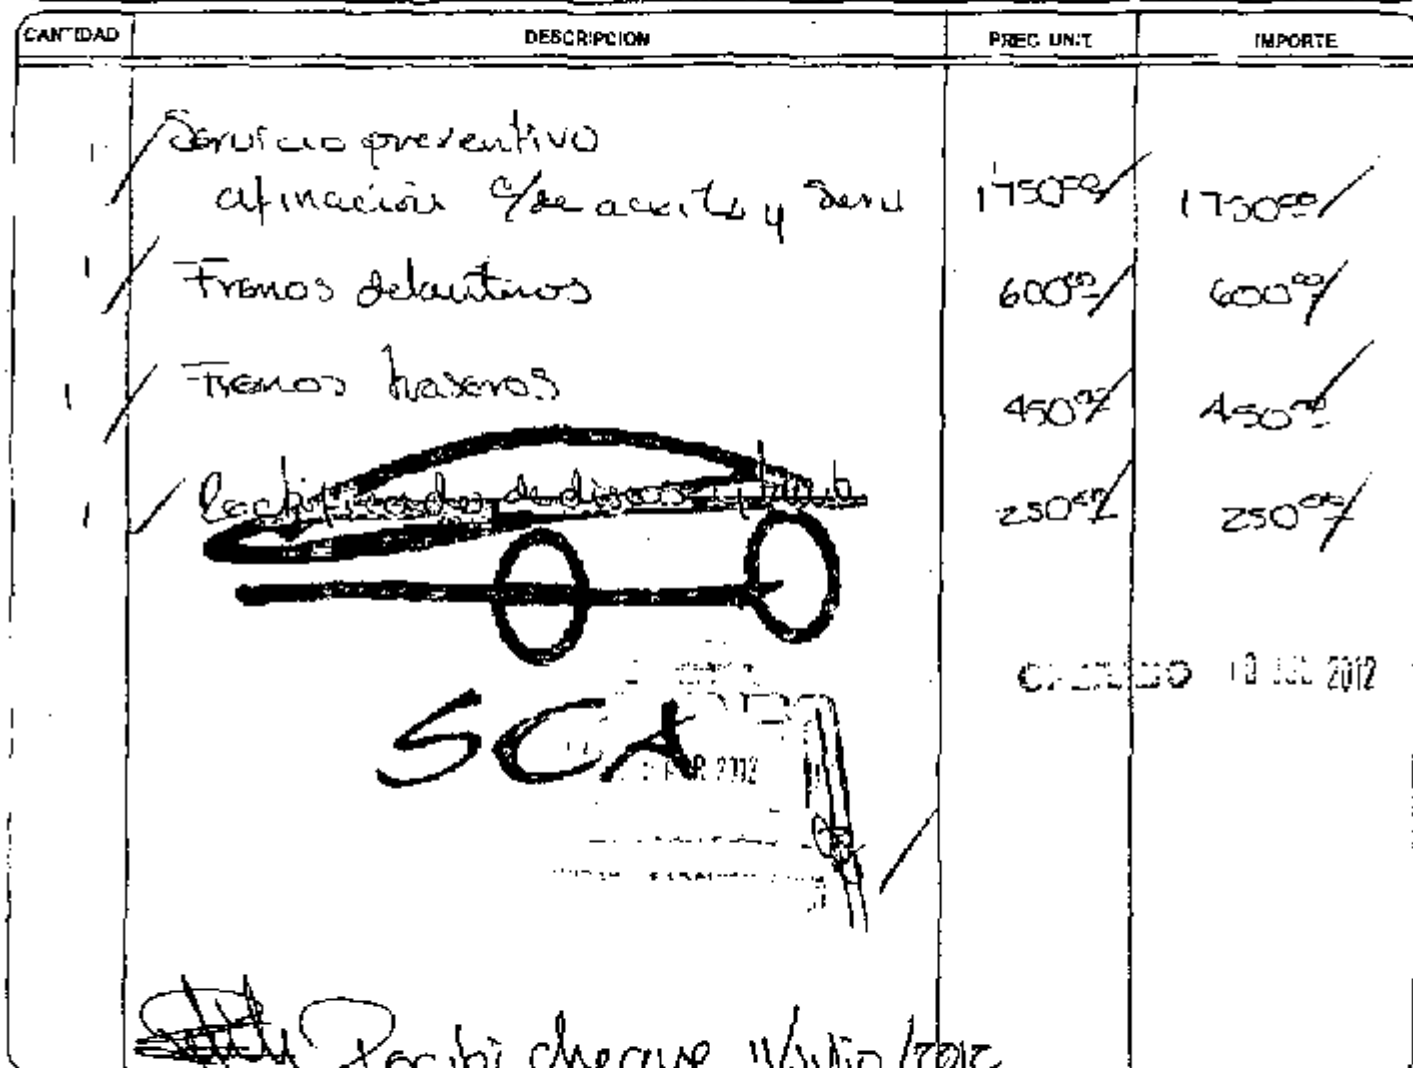 CANTIDAD DESCRIPCION PREC. UNIT. IMPORTE
1 Servicio preventivo
afinación c/de aceite y Serv 1750.00 1750.00
1 Frenos delanteros 600.00 600.00
1 Frenos traseros 450.00 450.00
1 Rectificado de discos y 250.00 250.00
2012
SCA
2012
Recibi cheque 11/Julio/2012